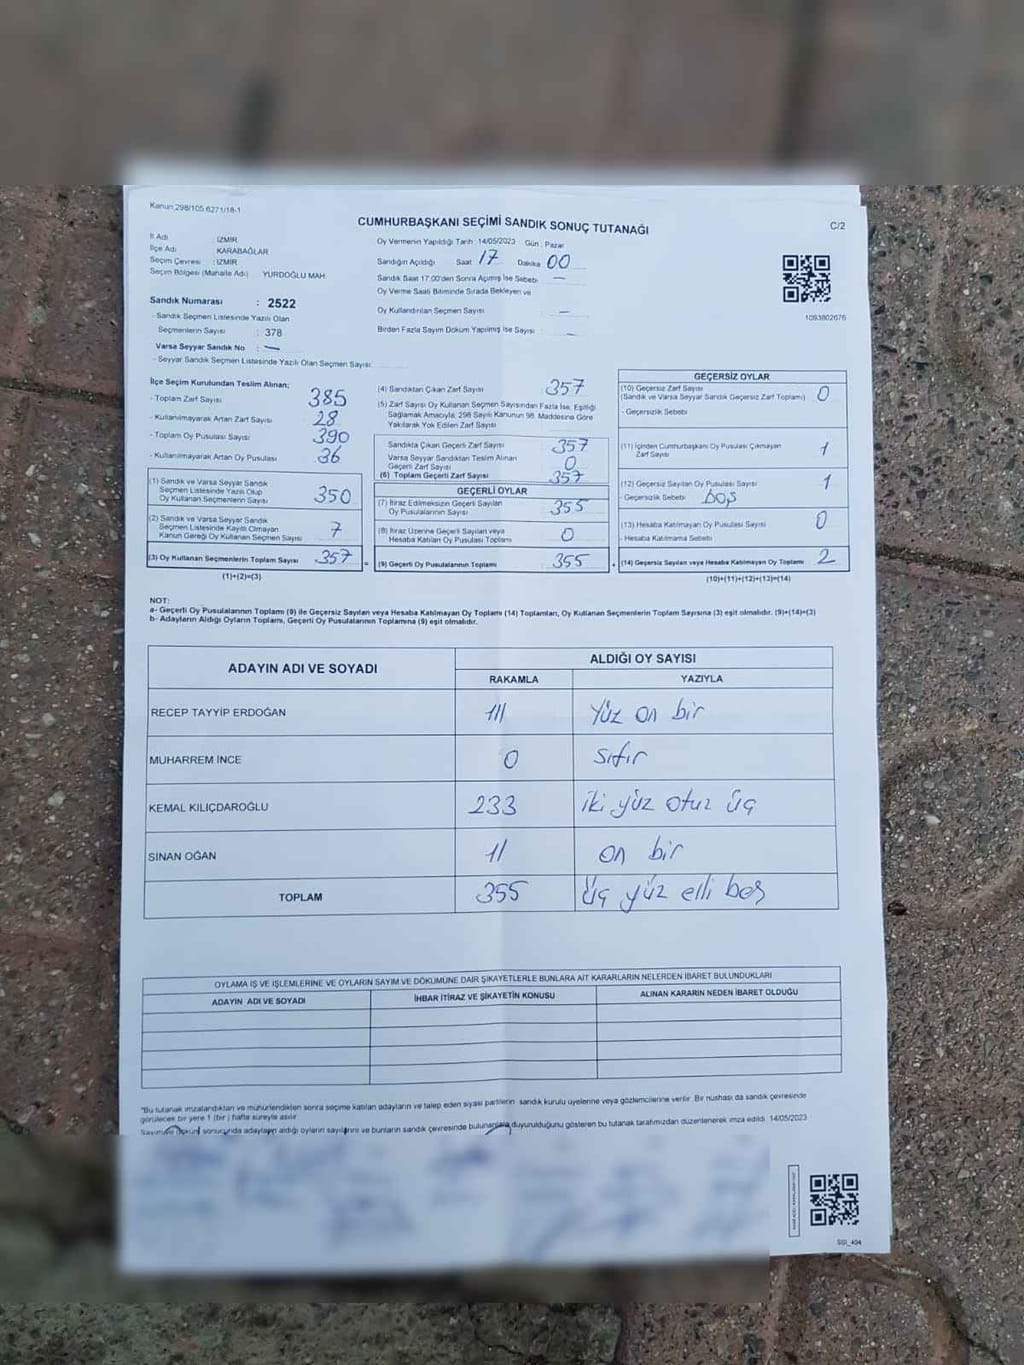 Kanun;298/105 6271/18-1
CUMHURBAŞKANI SEÇİMİ SANDIK SONUÇ TUTANAĞI
C/2
İl Adı : İZMİR
İlçe Adı : KARABAĞLAR
Seçim Çevresi : İZMİR
Seçim Bölgesi (Mahalle Adı) YURDOĞLU MAH.
Sandık Numarası : 2522
- Sandık Seçmen Listesinde Yazılı Olan
Seçmenlerin Sayısı : 378
Varsa Seyyar Sandık No : —
- Seyyar Sandık Seçmen Listesinde Yazılı Olan Seçmen Sayısı:
Oy Vermenin Yapıldığı Tarih : 14/05/2023 Gün : Pazar
Sandığın Açıldığı Saat 17 Dakika 00
Sandık Saat 17:00'den Sonra Açılmış İse Sebebi —
Oy Verme Saati Bitiminde Sırada Bekleyen ve
Oy Kullandırılan Seçmen Sayısı —
Birden Fazla Sayım Döküm Yapılmış İse Sayısı —
1093802676
İlçe Seçim Kurulundan Teslim Alınan;
- Toplam Zarf Sayısı 385
- Kullanılmayarak Artan Zarf Sayısı 28
- Toplam Oy Pusulası Sayısı 390
- Kullanılmayarak Artan Oy Pusulası 36
(1) Sandık ve Varsa Seyyar Sandık
Seçmen Listesinde Yazılı Olup
Oy Kullanan Seçmenlerin Sayısı 350
(2) Sandık ve Varsa Seyyar Sandık
Seçmen Listesinde Kayıtlı Olmayan
Kanun Gereği Oy Kullanan Seçmen Sayısı 7
(3) Oy Kullanan Seçmenlerin Toplam Sayısı 357
(1)+(2)=(3)
(4) Sandıktan Çıkan Zarf Sayısı 357
(5) Zarf Sayısı Oy Kullanan Seçmen Sayısından Fazla İse, Eşitliği
Sağlamak Amacıyla, 298 Sayılı Kanunun 98. Maddesine Göre
Yakılarak Yok Edilen Zarf Sayısı
Sandıkta Çıkan Geçerli Zarf Sayısı 357
Varsa Seyyar Sandıktan Teslim Alınan
Geçerli Zarf Sayısı 0
(6) Toplam Geçerli Zarf Sayısı 357
GEÇERLİ OYLAR
(7) İtiraz Edilmeksizin Geçerli Sayılan
Oy Pusulalarının Sayısı 355
(8) İtiraz Üzerine Geçerli Sayılan veya
Hesaba Katılan Oy Pusulası Toplamı 0
= (9) Geçerli Oy Pusulalarının Toplamı 355 +
GEÇERSİZ OYLAR
(10) Geçersiz Zarf Sayısı
(Sandık ve Varsa Seyyar Sandık Geçersiz Zarf Toplamı) 0
- Geçersizlik Sebebi
(11) İçinden Cumhurbaşkanı Oy Pusulası Çıkmayan
Zarf Sayısı 1
(12) Geçersiz Sayılan Oy Pusulası Sayısı 1
- Geçersizlik Sebebi boş
(13) Hesaba Katılmayan Oy Pusulası Sayısı 0
- Hesaba Katılmama Sebebi
(14) Geçersiz Sayılan veya Hesaba Katılmayan Oy Toplamı 2
(10)+(11)+(12)+(13)=(14)
NOT:
a- Geçerli Oy Pusulalarının Toplamı (9) ile Geçersiz Sayılan veya Hesaba Katılmayan Oy Toplamı (14) Toplamları, Oy Kullanan Seçmenlerin Toplam Sayısına (3) eşit olmalıdır. (9)+(14)=(3)
b- Adayların Aldığı Oyların Toplamı, Geçerli Oy Pusulalarının Toplamına (9) eşit olmalıdır.
ADAYIN ADI VE SOYADI
ALDIĞI OY SAYISI
RAKAMLA YAZIYLA
RECEP TAYYİP ERDOĞAN 111 Yüz on bir
MUHARREM İNCE 0 Sıfır
KEMAL KILIÇDAROĞLU 233 iki yüz otuz üç
SİNAN OĞAN 11 on bir
TOPLAM 355 Üç yüz elli beş
OYLAMA İŞ VE İŞLEMLERİNE VE OYLARIN SAYIM VE DÖKÜMÜNE DAİR ŞİKAYETLERLE BUNLARA AİT KARARLARIN NELERDEN İBARET BULUNDUKLARI
ADAYIN ADI VE SOYADI
İHBAR İTİRAZ VE ŞİKAYETİN KONUSU
ALINAN KARARIN NEDEN İBARET OLDUĞU
"Bu tutanak imzalandıktan ve mühürlendikten sonra seçime katılan adayların ve talep eden siyasi partilerin sandık kurulu üyelerine veya gözlemcilerine verilir. Bir nüshası da sandık çevresinde
görülecek bir yere 1 (bir ) hafta süreyle asılır.
Sayım ve döküm sonucunda adayların aldığı oyların sayılarını ve bunların sandık çevresinde bulunanlara duyurulduğunu gösteren bu tutanak tarafımızdan düzenlenerek imza edildi. 14/05/2023
SSI_404